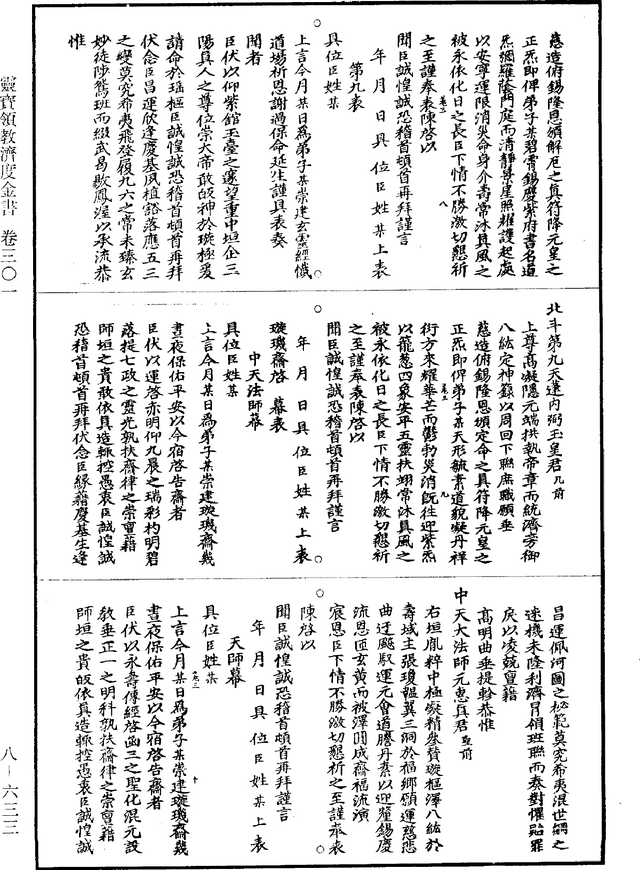 慈造俯錫隆恩頒解厄之真符降元皇之
正炁即俾弟子某碧霄錫慶紫府書名道
炁彌羅蔭門庭而清靜景星照耀護起處
以安寧運限消災命身介壽常沐真風之
被永依化日之長臣下情不勝激切懇祈
之至謹奉表陳啓以
聞臣誠惶誠恐稽首頓首再拜謹言
年 月 日具 位臣姓 某上表
第九表
具位臣姓某
上言今月某日為弟子某崇建玄靈經懺
道場祈恩謝過保命延生謹具表奏
聞者
臣伏以仰紫館玉臺之邃望重中垣企三
陽真人之尊位崇大帝敢皈神於璇極爰
請命於瑤樞臣誠惶誠恐稽首頓首再拜
伏念臣昌運欣逢慶基夙植谿落應五三
之變莫究希夷飛登履九六之常未臻玄
妙徒陟鴛班而綴武曷歌鳳渥以承流恭
惟
北斗第九天建内弼玉皇君几前
上尊高凝隱元端拱執帝章而統濟旁御
八紘定神籙以周回下聯庶職願垂
慈造俯錫隆恩頒定命之真符降元皇之
正炁即俾弟子某天形毓素道貌凝丹禪
街方來耀華芒而鬱勃災消既往迎紫炁
以籠葱四象安平五靈扶翊常沐真風之
被永依化日之長臣下情不勝激切懇祈
之至謹奉表陳啓以
聞臣誠惶誠恐稽首頓首再拜謹言
年 月 日具 位臣姓 某上表
璇璣齋啓 幕表
中天法師幕
具位臣姓某
上言今月某日為弟子某崇建璇璣齋幾
晝夜保佑平安以今宿啓告齋者
臣伏以運啓赤明仰九晨之瑞彩杓明碧
落提七政之靈光孰扶齋律之崇賣藉
師垣之貴敢依具造輒控愚衷臣誠惶誠
恐稽首頓首再拜伏念臣緣藉慶基生逢
昌運佩河圖之祕範莫究希夷混世網之
迷機未隆利濟冐領班聯而奏對懼貽罪
戾以凌兢亶藉
高明曲垂提軫恭惟
中天大法師元惠真君聖前
右垣胤粹中極凝精參贊璇樞澤八紘於
壽域主張瓊韞翼三洞於福鄉願運慈悲
曲迂飈馭運元會道謄丹素以迎釐錫慶
流恩匝玄黄而被澤冏成齋福流演
宸恩臣下情不勝激切懇祈之至謹奉表
陳啓以
聞臣誠惶誠恐稽首頓首再拜謹言
年 月 日具 位臣姓 某上表
天師幕
具位臣姓某
上言今月某日為弟子某崇建璇璣齋幾
晝夜保佑平安以今宿啓告齋者
臣伏以永壽傳經啓函三之聖化混元設
教垂正一之明科孰扶齋律之崇亶藉
師垣之貴皈依具造輒控愚衷臣誠惶誠
靈寶領教濟度金書 卷三〇一
八-六三三